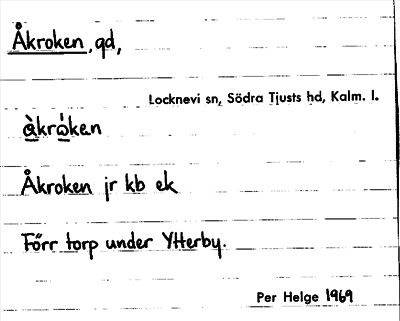 Åkroken, gd,
Locknevi sn, Södra Tjusts hd, Kalm. l.
å̀krò̱ken
Åkroken jr kb ek
Förr torp under Ytterby.
Per Helge 1969